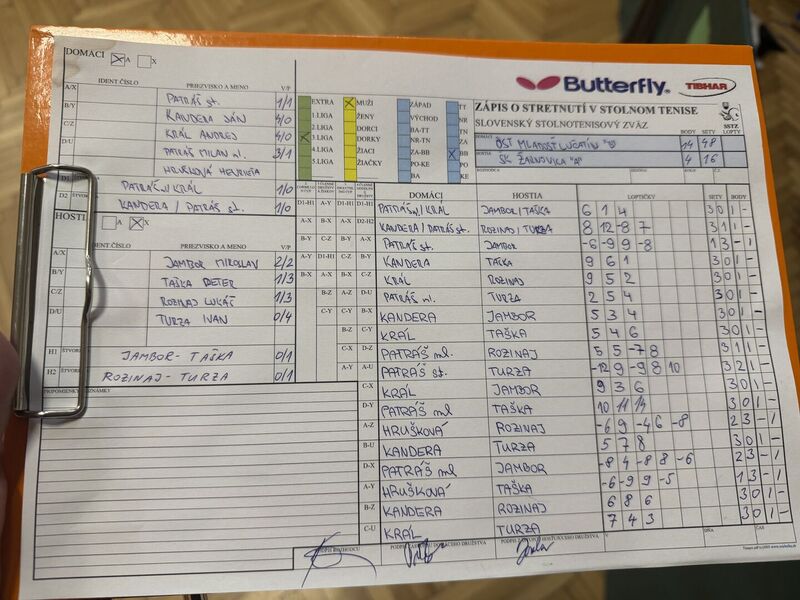 DOMÁCI X A X
IDENT.ČÍSLO PRIEZVISKO A MENO V/P
A/X PATRÁŠ st. 1/1
B/Y KANDERA JÁN 4/0
C/Z KRÁĽ ANDREJ 4/0
D/U PATRÁŠ MILAN ml. 3/1
HRUŠKOVÁ HENRIETA
D1 PATRÁŠ ml/KRÁĽ 1/0
D2 KANDERA / PATRÁŠ st. 1/0
HOSTIA A X
IDENT.ČÍSLO PRIEZVISKO A MENO V/P
A/X JAMBOR MIROSLAV 2/2
B/Y TAŠKA PETER 1/3
C/Z ROZINAJ LUKÁŠ 1/3
D/U TURZA IVAN 0/4
H1 JAMBOR - TAŠKA 0/1
H2 ROZINAJ - TURZA 0/1
EXTRA
1.LIGA
2.LIGA
3.LIGA
4.LIGA
5.LIGA
X MUŽI
ŽENY
DORCI
DORKY
ŽIACI
ŽIAČKY
ZÁPAD
VÝCHOD
BA-TT
NR-TN
ZA-BB
PO-KE
BA
TT
NR
TN
ZA
X BB
PO
KE
Butterfly TIBHAR
ZÁPIS O STRETNUTÍ V STOLNOM TENISE
SLOVENSKÝ STOLNOTENISOVÝ ZVÄZ
SSTZ
DOMÁCI BODY SETY LOPTY
OŠT MLADOSŤ LUČATÍN "B" 14 48
HOSTIA SK ŽARNOVICA "A" 4 16
DOMÁCI HOSTIA LOPTIČKY SETY BODY
D1-H1 PATRÁŠ ml/KRÁĽ JAMBOR/TAŠKA 6 1 4 3 0 1 -
D2-H2 KANDERA/PATRÁŠ st. ROZINAJ/TURZA 8 12 -8 7 3 1 1 -
A-X PATRÁŠ st. JAMBOR -6 -9 9 -8 1 3 - 1
B-Y KANDERA TAŠKA 9 6 1 3 0 1 -
C-Z KRÁĽ ROZINAJ 9 5 2 3 0 1 -
D-U PATRÁŠ ml. TURZA 2 5 4 3 0 1 -
B-X KANDERA JAMBOR 5 3 4 3 0 1 -
C-Y KRÁĽ TAŠKA 5 4 6 3 0 1 -
D-Z PATRÁŠ ml. ROZINAJ 5 5 -7 8 3 1 1 -
A-U PATRÁŠ st. TURZA -12 9 -9 8 10 3 2 1 -
C-X KRÁĽ JAMBOR 9 3 6 3 0 1 -
D-Y PATRÁŠ ml TAŠKA 10 11 14 3 0 1 -
A-Z HRUŠKOVÁ ROZINAJ -6 9 -4 6 -8 2 3 - 1
B-U KANDERA TURZA 5 7 8 3 0 1 -
D-X PATRÁŠ ml JAMBOR -8 4 -8 8 -6 2 3 - 1
A-Y HRUŠKOVÁ TAŠKA -6 -9 9 -5 1 3 - 1
B-Z KANDERA ROZINAJ 6 8 6 3 0 1 -
C-U KRÁĽ TURZA 7 4 3 3 0 1 -
PODPIS ROZHODCU